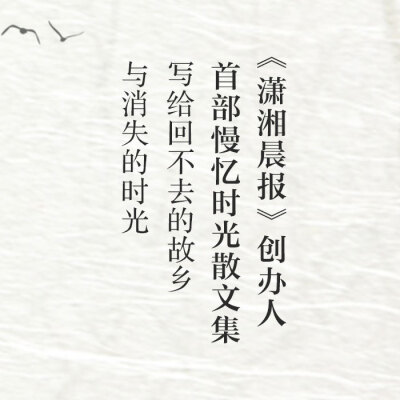 《潇湘晨报》创办人
首部慢忆时光散文集
写给回不去的故乡
与消失的时光